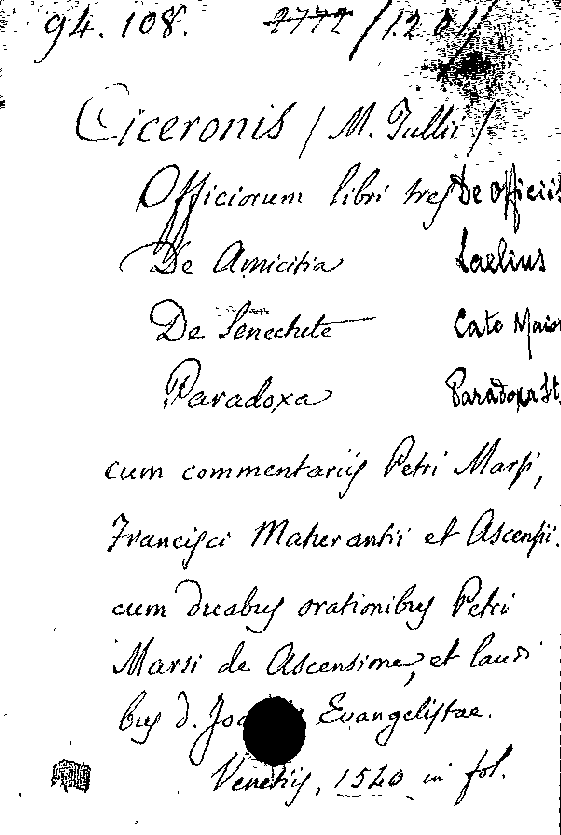 94.108.
Ciceronis / M. Tullii /
Officiorum libri tres De officiis
De Amicitia Laelius
De Senectute Cato Maior
Paradoxa Paradoxa St
cum commentariis Petri Marsi,
Francisci Maturantii et Ascensii.
cum duabus orationibus Petri
Marsi de Ascensione, et laudi
bus d. Evangelistae.
Venetiis, 1540 in fol.